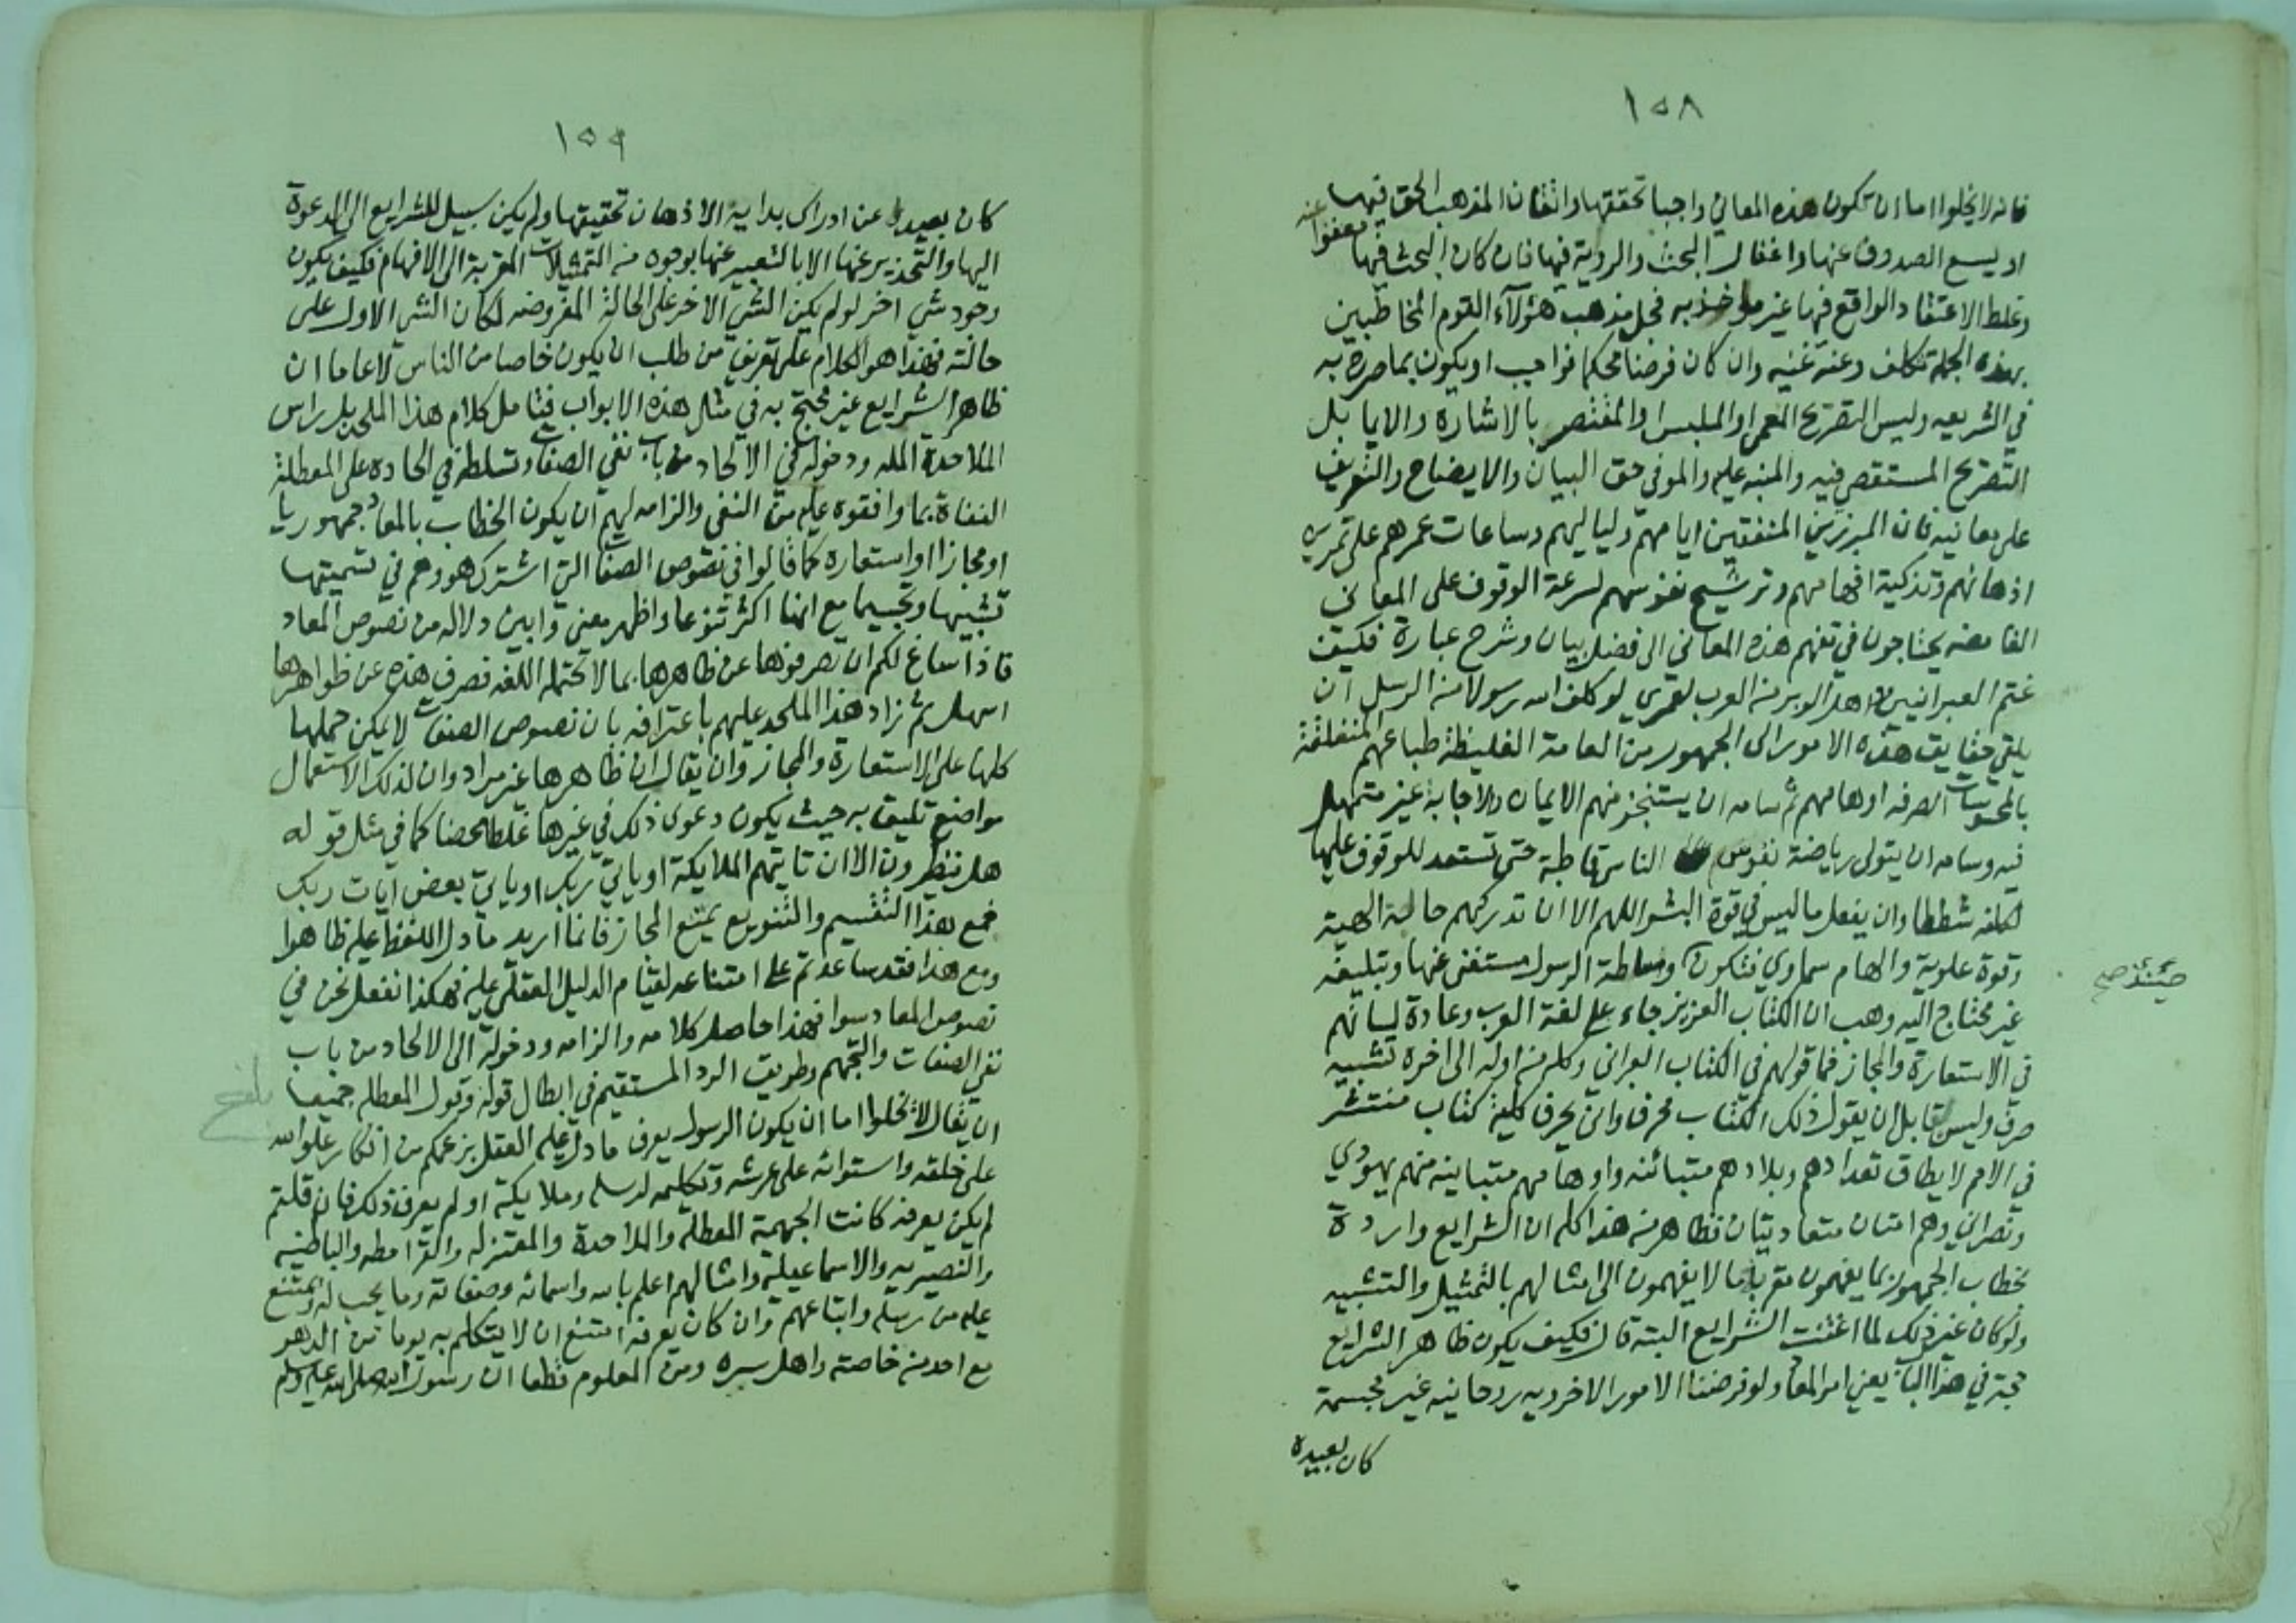 ١٥٨
فانه لا يخلوا اما ان تكون هذه المعاني واجبا تحققها واتقان المذهب الحق فيها
او يسع الصدوف عنها واغفال البحث والروية فيها فان كان البحث فيها معفوا عنه
وغلط الاعتقاد الواقع فيها غير مواخذ به فجل مذهب هؤلآء القوم المخاطبين
بهذه الجملة تكلف وعنه غنيه وان كان فرضا محكما فواجب ان يكون بما صرح به
في الشريعه وليس التصريح المعمى او الملبس او المقتصر بالاشارة والايما بل
التصريح المستقصى فيه والمنبه عليه والموفى حق البيان والايضاح والتعريف
على معانيه فان المبرزين المنفقين ايامهم ولياليهم وساعات عمرهم على تمرين
اذهانهم وتذكية افهامهم وترشيح نفوسهم لسرعة الوقوف على المعاني
الغامضه يحتاجون في تفهم هذه المعاني الى فضل بيان وشرح عبارة فكيف
غتم العبرانيين واهل الوبر من العرب لعمري لو كلف الله رسولا من الرسل ان
يلقي حقايق هذه الامور الى الجمهور من العامة الغليظة طباعهم المتعلقة
بالمحسوسات الصرفه اوهامهم ثم سامه ان يستنجز منهم الايمان والاجابة غير متمهل
فيه وسامه ان يتولى رياضة نفوس الناس قاطبة حتى تستعد للوقوف عليها
لكلفه شططا وان يفعل ما ليس في قوة البشر اللهم الا ان تدركهم حالة الهية
وقوة علوية والهام سماوي فتكون وساطة الرسول مستغنى عنها وتبليغه
حينئذ صح
غير محتاج اليه وهب ان الكتاب العزيز جاء على لغة العرب وعادة لسانهم
في الاستعارة والمجاز فما قولهم في الكتاب العبراني وكله من اوله الى اخره تشبيه
صرف وليس لقايل ان يقول ذلك الكتاب محرف وانى يحرف كلية كتاب منتشر
في الامم لا يطاق تعدادهم وبلادهم متبائنه واوهامهم متباينه منهم يهودي
ونصراني وهم امتان متعاديتان فظاهر من هذا كله ان الشرايع واردة
بخطاب الجمهور بما يفهمون مقربا ما لا يفهمون الى امثالهم بالتمثيل والتشبيه
ولو كان غير ذلك لما اغنت الشرايع البتة قال فكيف يكون ظاهر الشرايع
حجة في هذا الباب يعني امر المعاد ولو فرضنا الامور الاخرويه روحانيه غير مجسمة
كان بعيدة
١٥٩
كان بعيدا عن ادراك بداية الاذهان تحقيقها ولم يكن سبيل للشرايع الى الدعوة
اليها والتحذير عنها الا بالتعبير عنها بوجوه من التمثيلات المقربة الى الافهام فكيف يكون
وجود شي اخر لو لم يكن الشي الاخر على الحالة المفروضه لكان الشي الاول على
حالته فهذا هو الكلام على تعريف من طلب ان يكون خاصا من الناس لا عاما ان
ظاهر الشرايع غير محتج به في مثل هذه الابواب فتامل كلام هذا الملحد بل راس
الملاحدة المله ودخوله في الالحاد من باب نفي الصفات وتسلطه في الحاده على المعطلة
النفاة بما وافقوه عليه من النفي والزامه لهم ان يكون الخطاب بالمعاد جمهوريا
او مجازا او استعاره كما قالوا في نصوص الصفات التي اشترك هو وهم في تسميتها
تشبيها وتجسيما مع انها اكثر تنوعا واظهر معنى وابين دلاله من نصوص المعاد
فاذا ساغ لكم ان تصرفوها عن ظاهرها بما لا تحتمله اللغه فصرف هذه عن ظواهرها
اسهل ثم زاد هذا الملحد عليهم باعترافه بان نصوص الصفات لا يمكن حملها
كلها على الاستعارة والمجاز وان يقال ان ظاهرها غير مراد وان لذلك الاستعمال
مواضع تليق به حيث يكون دعوى ذلك في غيرها غلطا محضا كما في مثل قوله
هل ينظرون الا ان تاتيهم الملايكة او ياتي ربك او ياتي بعض آيات ربك
فمع هذا التقسيم والتنويع يمتنع المجاز فانما اريد ما دل اللفظ عليه ظاهرا
ومع هذا فقد ساعدتم على امتناعه لقيام الدليل العقلي عليه فهكذا نفعل نحن في
نصوص المعاد سوا فهذا حاصل كلامه والزامه ودخوله الى الالحاد من باب
نفي الصفات والتجهم وطريق الرد المستقيم في ابطال قوله وقول المعطله جميعا
بلغ
ان يقال لا تخلوا اما ان يكون الرسول يعرف ما دل عليه العقل بزعمكم من انكار علو الله
على خلقه واستوائه على عرشه وتكليمه لرسله وملايكته او لم يعرف ذلك فان قلتم
لم يكن يعرفه كانت الجهمية المعطلة والملاحدة والمعتزله والقرامطه والباطنيه
والنصيريه والاسماعيلية وامثالهم اعلم بالله واسمائه وصفاته وما يجب له ويمتنع
عليه من رسله واتباعهم وان كان يعرفه امتنع ان لا يتكلم به يوما من الدهر
مع احد من خاصته واهل سره ومن المعلوم قطعا ان رسول الله صلى الله عليه وسلم